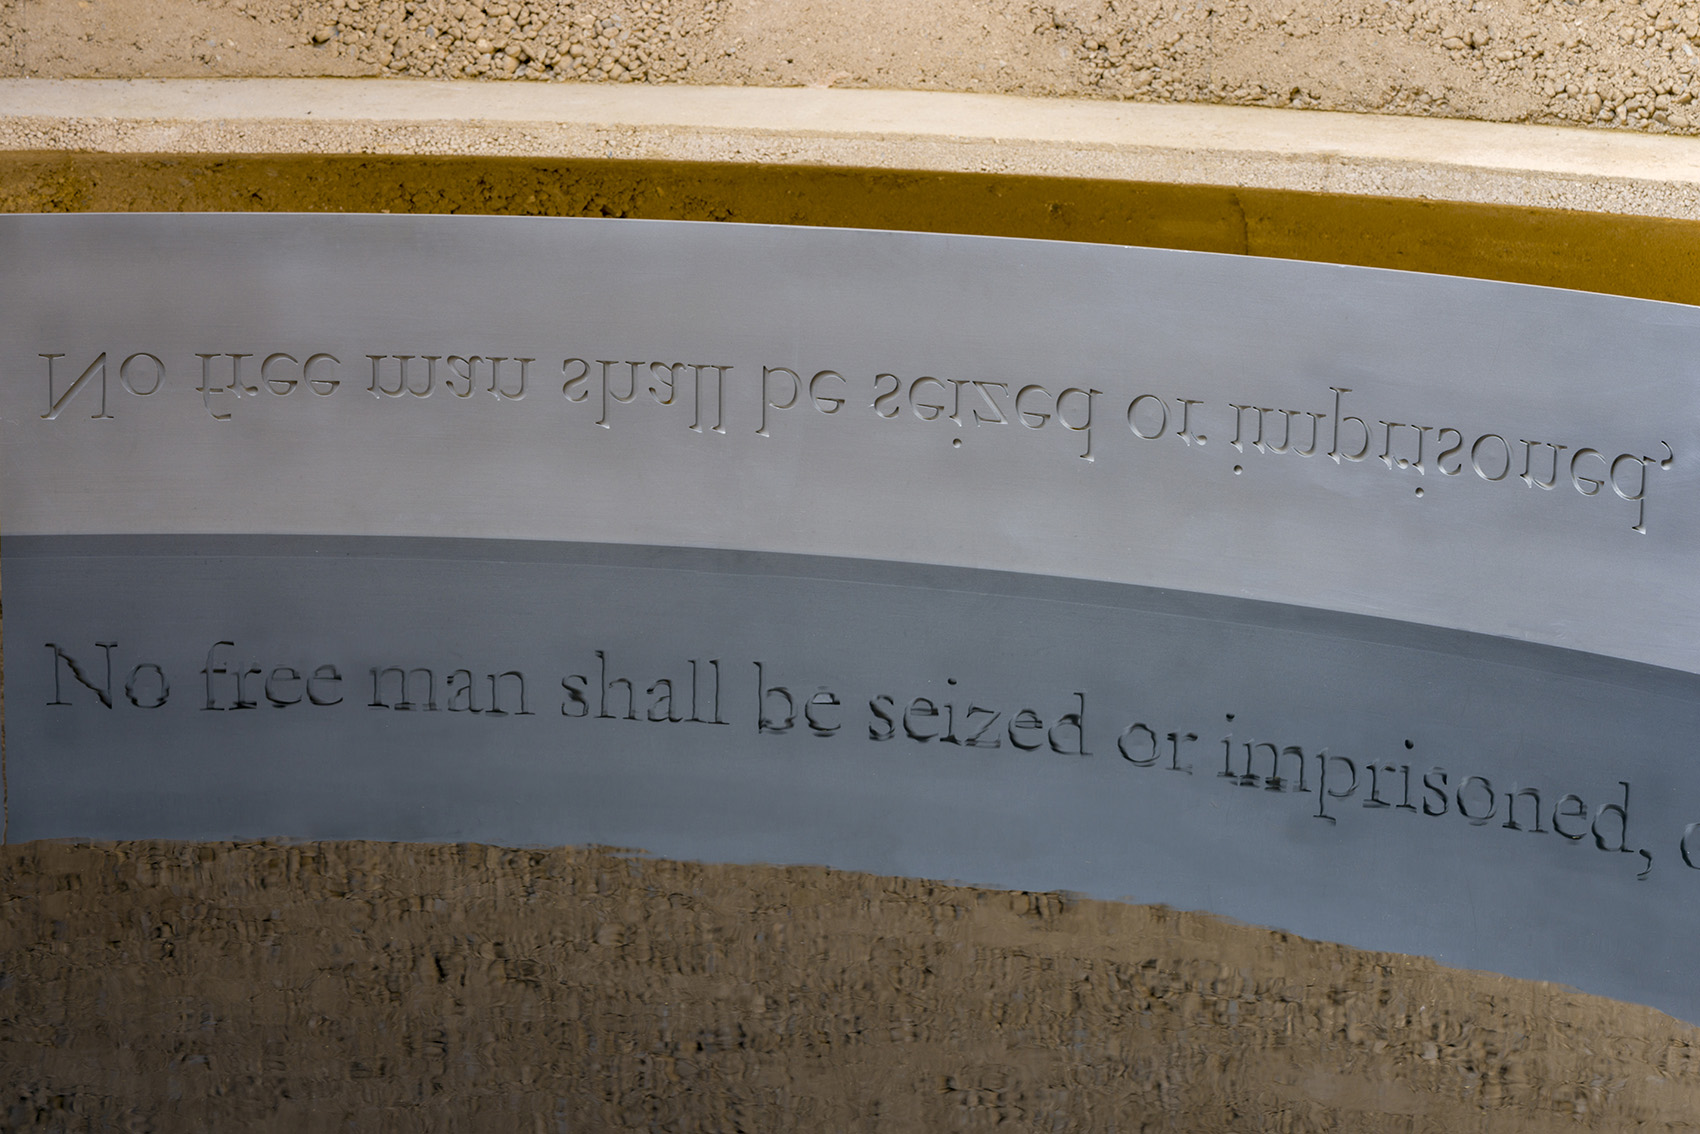 No free man shall be seized or imprisoned,
No free man shall be seized or imprisoned,